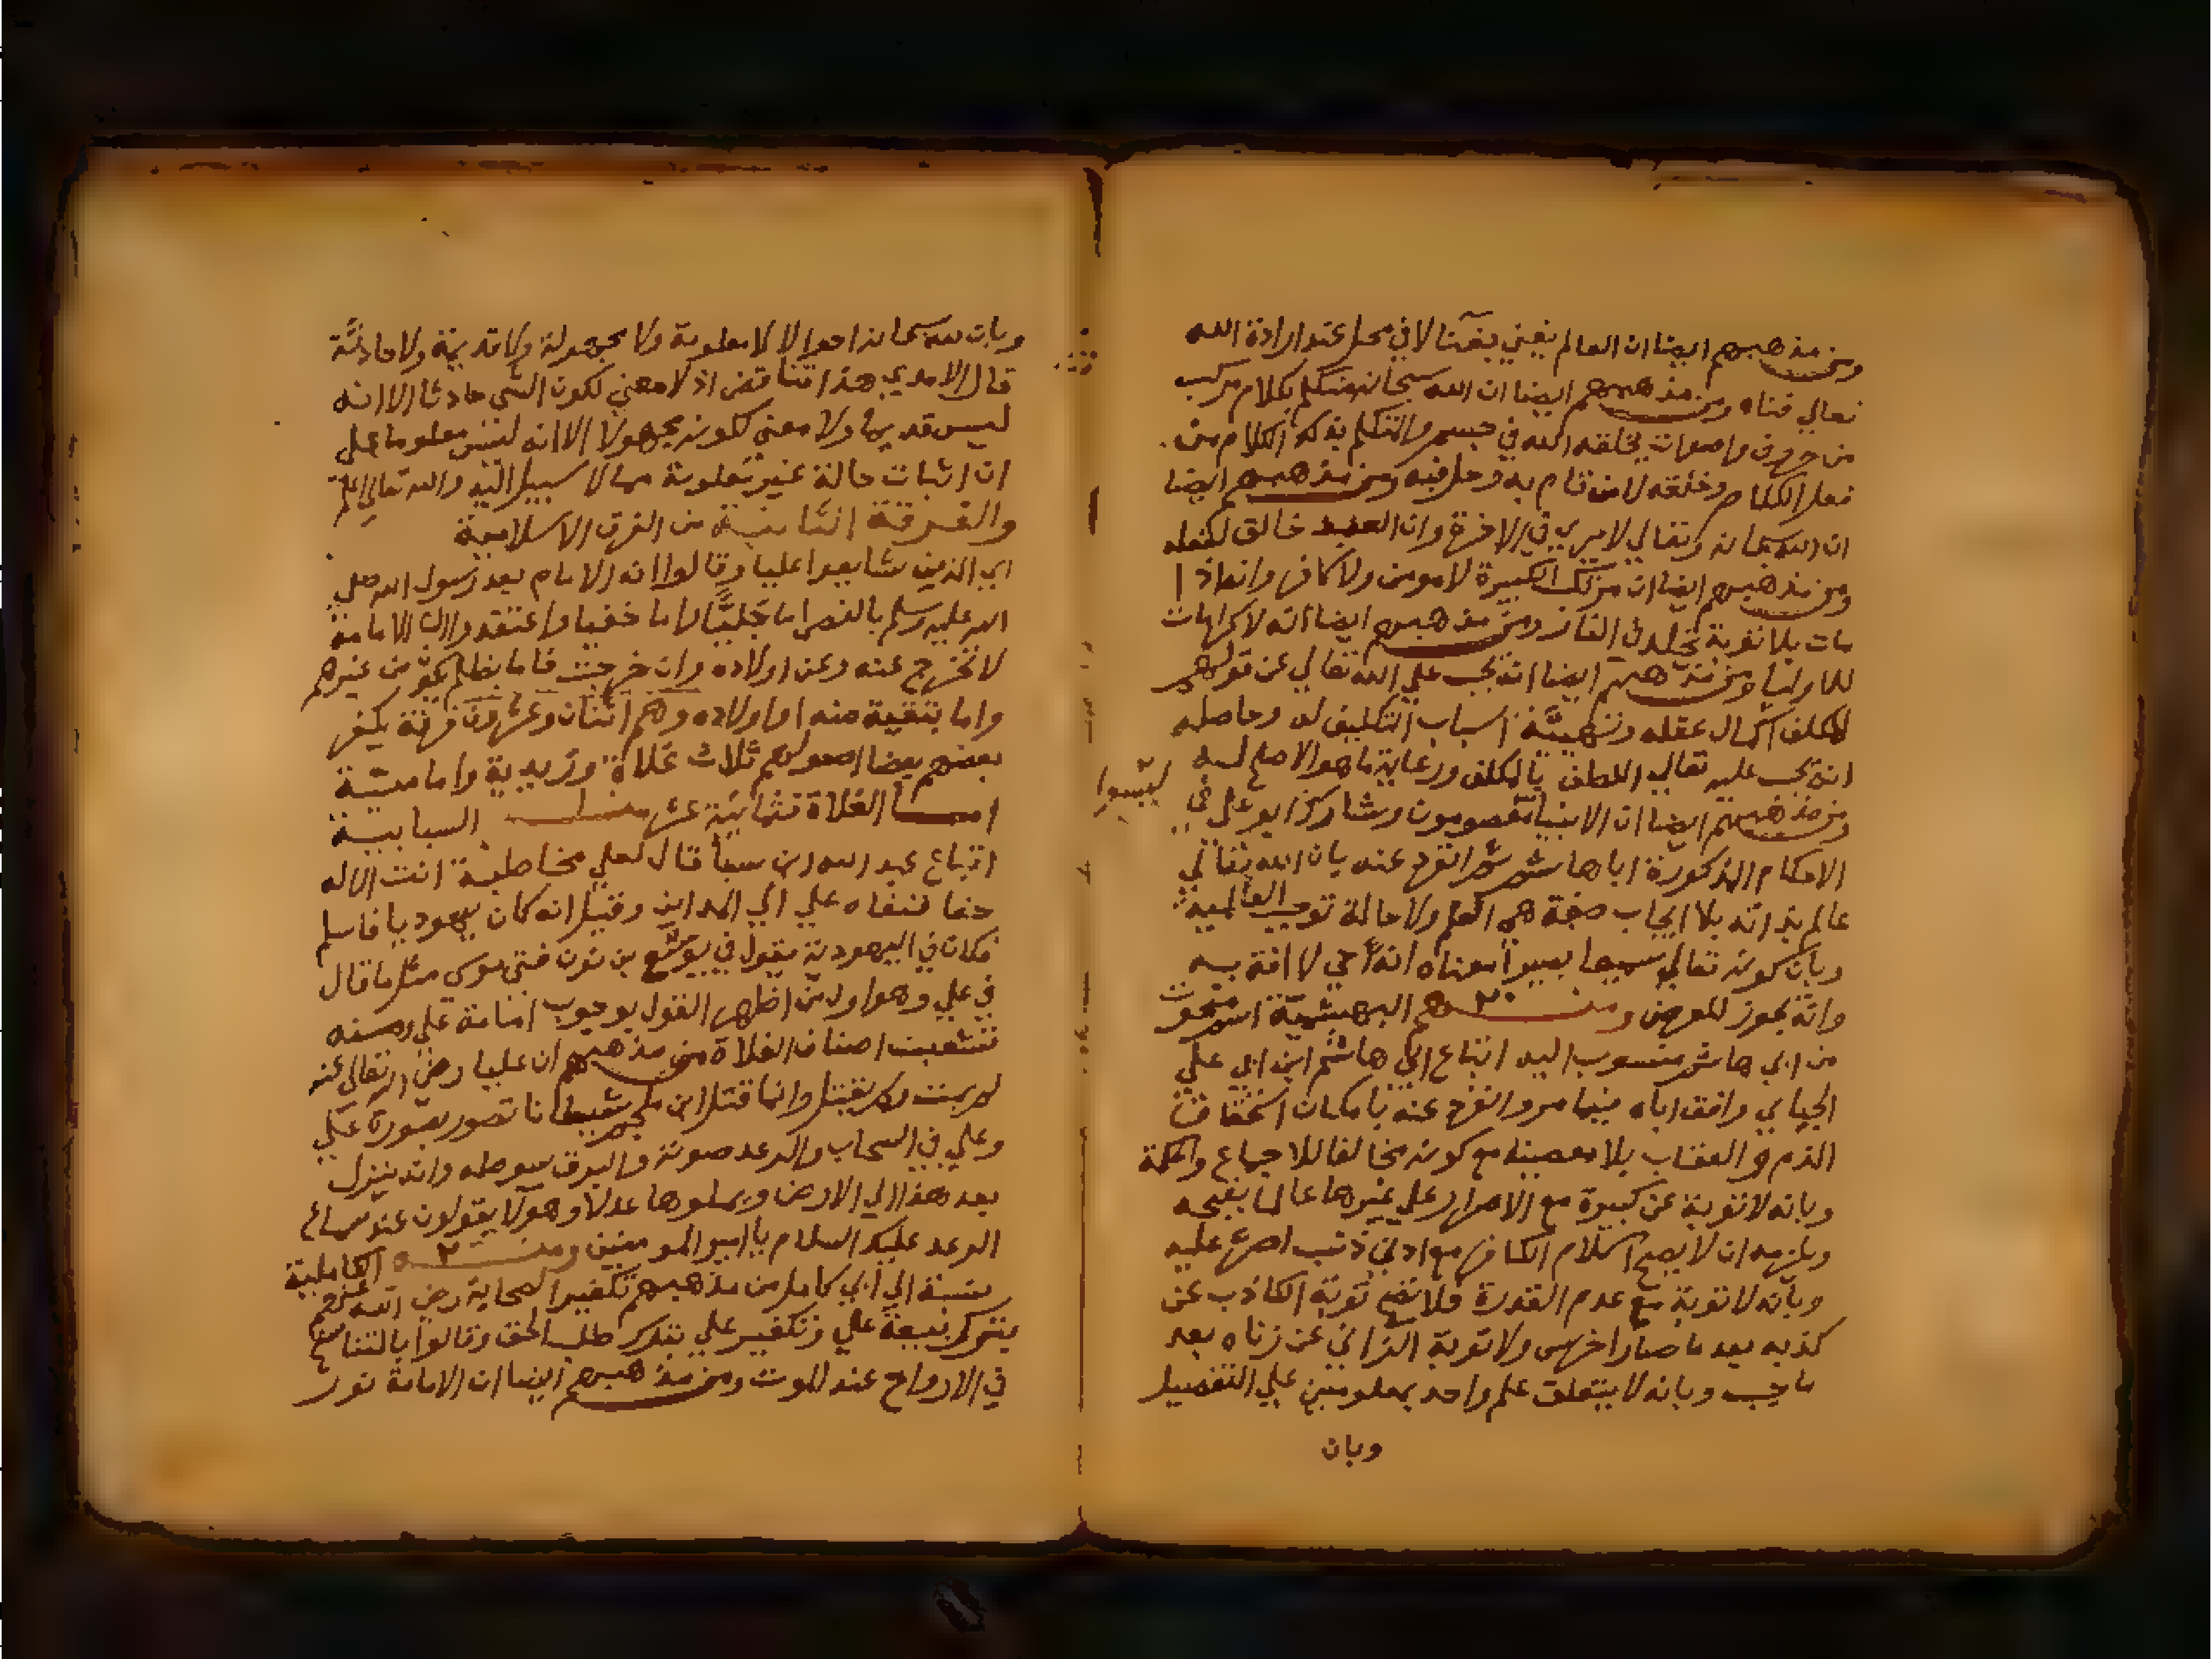 ومن مذهبهم ايضا ان العالم يفني بفنا لا في محل عند ارادة الله
تعالي فناه ومن مذهبهم ايضا ان الله سبحانه متكلم بكلام مركب
من حروف واصوات يخلقه الله في جسم والمتكلم بذلك الكلام من
فعل الكلام وخلقه لا من قام به وحل فيه ومن مذهبهم ايضا
ان الله سبحانه وتعالي لا يري في الاخرة وان العبد خالق لفعله
ومن مذهبهم ايضا ان مرتكب الكبيرة لا مومن ولا كافر وانه اذا
مات بلا توبة يخلد في النار ومن مذهبهم ايضا انه لا كرامات
للاوليا ومن مذهبهم ايضا انه يجب علي الله تعالي عن قولهم
للمكلف اكمال عقله وتهيئة اسباب التكليف له وحاصله
انه يجب عليه تعالي اللطف بالمكلف ورعاية ما هو الاصلح له
ومن مذهبهم ايضا ان الانبيا معصومون وشارك ابو علي في
الاحكام المذكورة اباها شم ثم انفرد عنه بان الله تعالي
عالم بذاته بلا ايجاب صفة هي العلم ولا حالة توجب العالمية
وبان كونه تعالي سميعا بصيرا معناه انه حي لا افة به
وانه يجوز للعرض ومنهم البهشمية
من ابي هاشم منسوب اليه اتباع ابي هاشم ابن ابي علي
الجباي وافق اباه فيما مر وانفرد عنه بامكان استحقاق
الذم و العقاب بلا معصية مع كونه مخالفا للاجماع والحكمة
وبانه لا توبة عن كبيرة مع الاصرار علي غيرها عالما بقبحه
ويلزمه ان لا يصح اسلام الكافر مع ادني ذنب اصر عليه
وبانه لا توبة مع عدم القدرة فلا تصح توبة الكاذب عن
كذبه بعد ما صار اخرس ولا توبة الزاني عن زناه بعد
ما جب وبانه لا يتعلق علم واحد بمعلومين علي التفصيل
وبان
وبان لله سبحانه احوالا لا معلومة ولا مجهولة ولا قديمة ولا حادثة
قال الامدي هذا تناقض اذ لا معني لكون الشي حادثا الا انه
ليس قديما ولا معني لكونه مجهولا الا انه ليس معلوما علي
ان اثبات حالة غير معلومة مما لا سبيل اليه والله تعالي اعلم
والفرقة الثانية من الفرق الاسلامية
اي الذين شايعوا عليا وقالوا انه الامام بعد رسول الله صلي
الله عليه وسلم بالنص اما جليا واما خفيا واعتقدوا ان الامامة
لا تخرج عنه وعن اولاده وان خرجت فاما بظلم يكون من غيرهم
واما بتقية منه او اولاده وهم اثنان وعشرون فرقة يكفر
بعضهم بعضا اصولهم ثلاث غلاة وزيدية وامامية
اما الغلاة فثمانية عشر السبابية
اتباع عبد الله ابن سبا قال لعلي مخاطبة انت الاله
حقا فنفاه علي الي المداين وقيل انه كان يهوديا فاسلم
فكان في اليهودية يقول في يوشع بن نون فتي موسي مثل ما قال
في علي وهو اول من اظهر القول بوجوب امامة علي ومنه
تشعبت اصناف الغلاة من مذهبهم ان عليا رضي الله تعالي عنه
لم يمت ولم يقتل وانما قتل ابن ملجم شيطانا تصور بصورة علي
وعلي في السحاب والرعد صوته والبرق سوطه وانه ينزل
بعد هذا الي الارض ويملوها عدلا وهولا يقولون عند سماع
الرعد عليك السلام يا امير المومنين ومنهم الكاملية
نسبة الي ابي كامل من مذهبهم تكفير الصحابة رضي الله عنهم
بترك بيعة علي وتكفير علي بترك طلب الحق وقالوا بالتناسخ
في الارواح عند الموت ومن مذهبهم ايضا ان الامامة نور